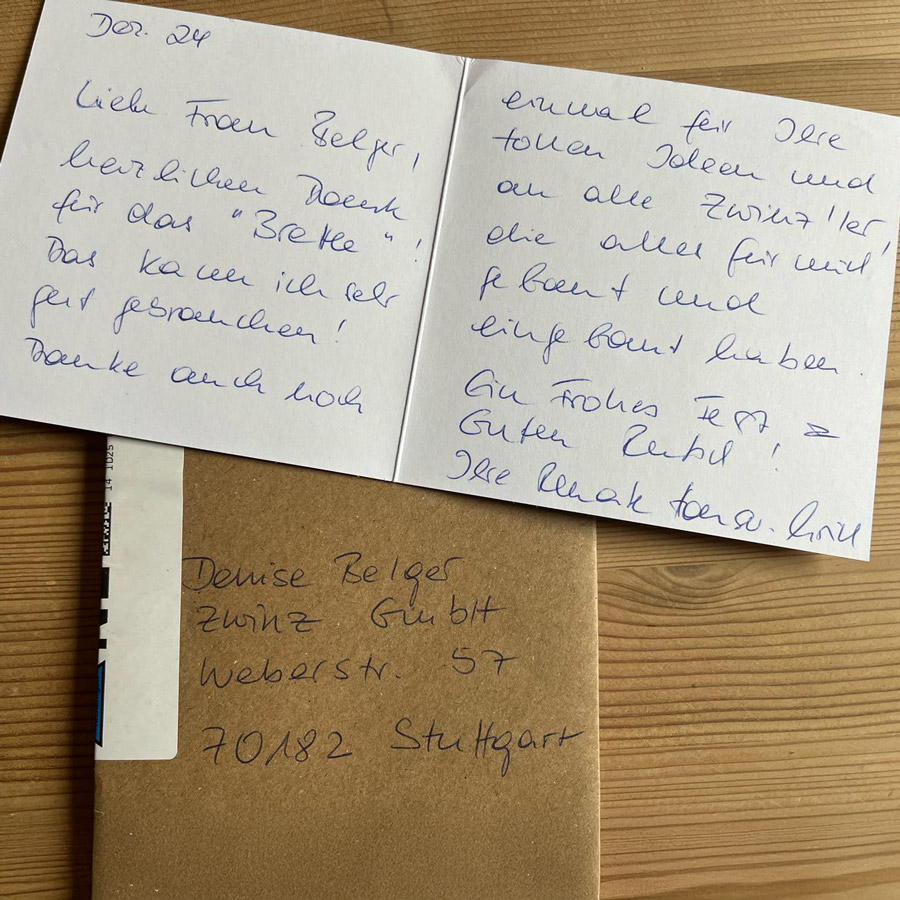 Dez. 24
Liebe Frau Belger,
herzlichen Dank
für das "Brettle"!
Das kann ich sehr
gut gebrauchen!
Danke auch noch
einmal für Ihre
tollen Ideen und
an alle Zwinz'ler
die alles für mich
gebaut und
eingebaut haben.
Ein Frohes Fest &
Guten Rutsch!
Ihre
14 1025
Denise Belger
Zwinz GmbH
Weberstr. 57
70182 Stuttgart